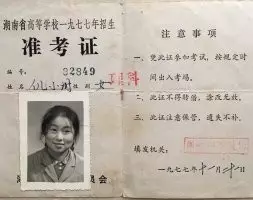 湖南省高等学校一九七七年招生
准考证
编号：32849
姓名 性别 女
委员会
注意事项
一、凭此证参加考试，按规定时
间出入考场。
二、此证不得转借，涂改无效。
三、此证注意保管，遗失不补。
填发机关：
一九七七年十一月二十一日